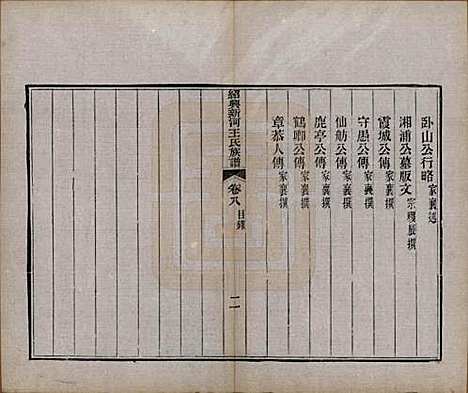 卧山公行略家襄述
湘浦公墓版文宗稷辰撰
霞城公傳家襄撰
守愚公傳家襄撰
仙舫公傳家襄撰
鹿亭公傳家襄撰
鶴聊公傳家襄撰
章恭人傳家襄撰
紹興新河王氏族譜
卷八
目錄
二